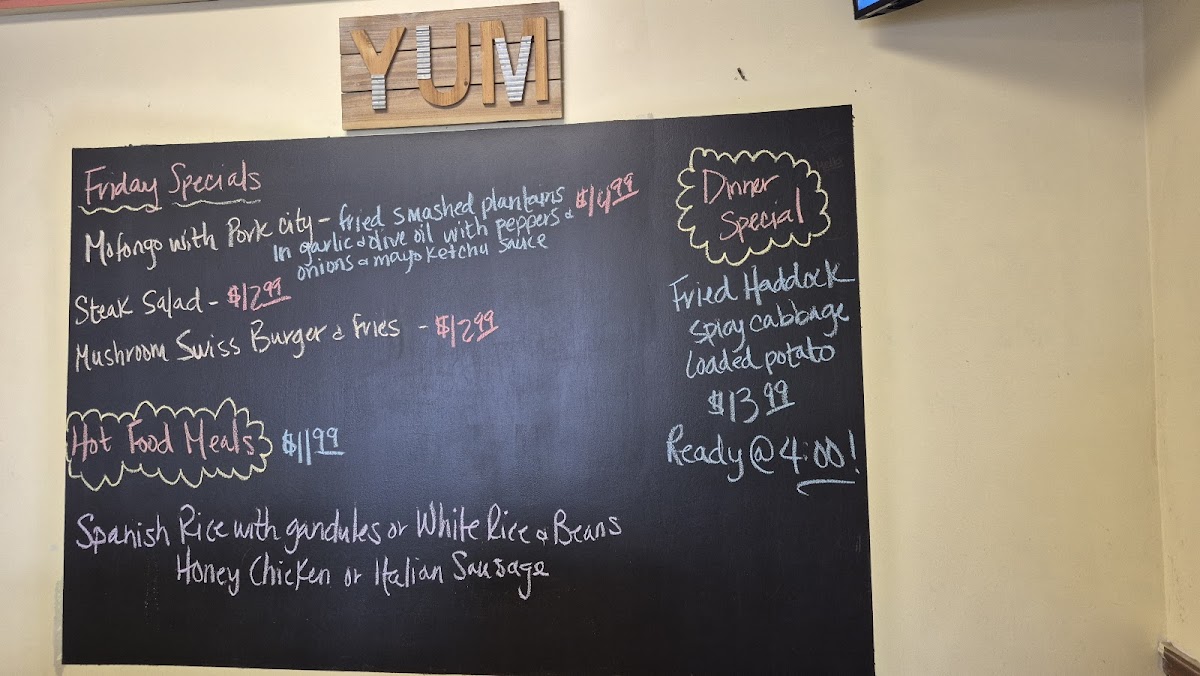 YUM
Friday Specials
Mofongo with Pork city - fried smashed plantains $14.99
in garlic & olive oil with peppers &
onions & mayo ketchu sauce
Steak Salad - $12.99
Mushroom Swiss Burger & Fries - $12.99
Hot Food Meals $11.99
Spanish Rice with gandules or White Rice & Beans
Honey Chicken or Italian Sausage
Dinner
Special
Fried Haddock
spicy cabbage
loaded potato
$13.99
Ready @ 4:00!